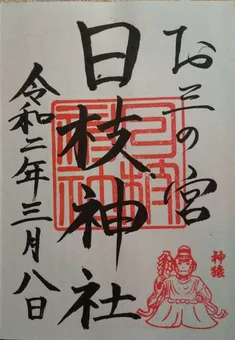 お三の宮
日枝神社
令和二年三月八日
日枝神社
神猿